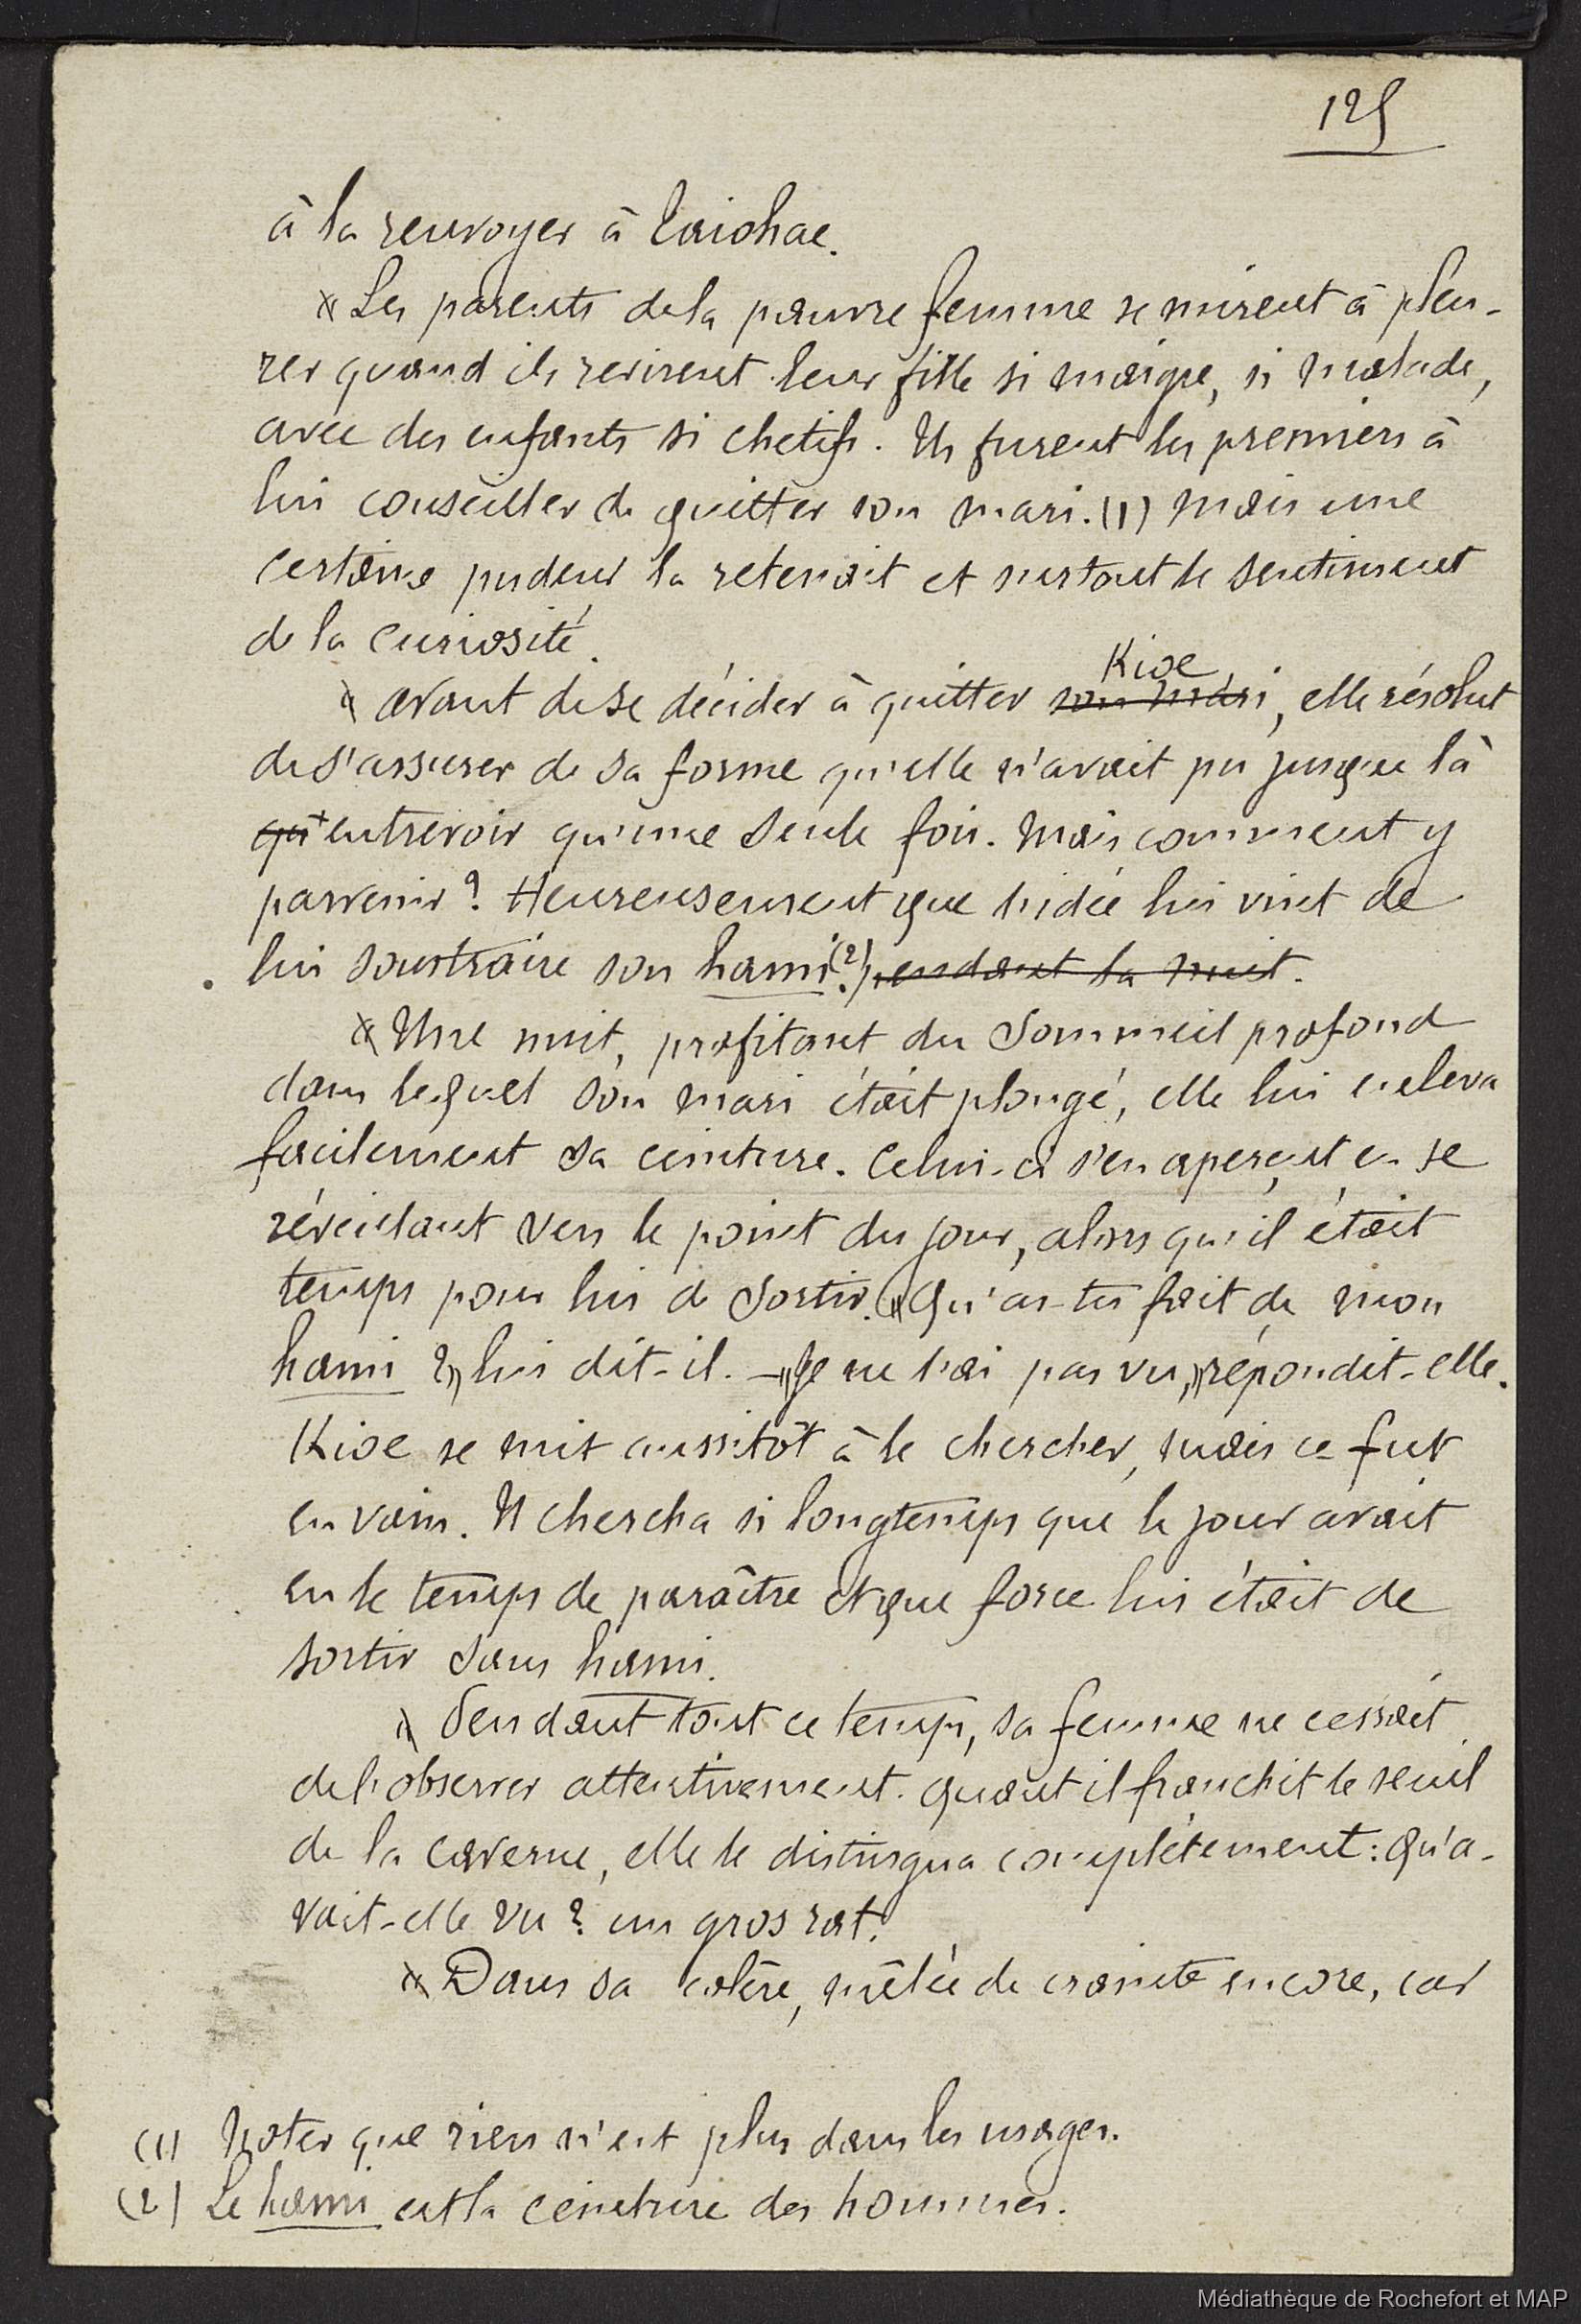 125
à la renvoyer à Taiohae.
Les parents de la pauvre femme se mirent à pleu-
rer quand ils revirent leur fille si maigre, si malade,
avec des enfants si chetifs. Ils furent les premiers à
lui conseiller de quitter son mari. (1) Mais une
certaine pudeur la retenait et surtout le sentiment
de la curiosité.
Kioe
avant de se décider à quitter son mari, elle résolut
de s'assurer de sa forme qu'elle n'avait pu jusque là
qu'entrevoir qu'une seule fois. Mais comment y
parvenir? Heureusement que l'idée lui vint de
lui soustraire son hami (2). pendant la nuit.
Une nuit, profitant du Sommeil profond
dans lequel son mari était plongé, elle lui enleva
facilement sa ceinture. Celui-ci s'en aperçut en se
réveillant vers le point du jour, alors qu'il était
temps pour lui de sortir. « Qu'as-tu fait de mon
hami ?» lui dit-il. – «Je ne l'ai pas vu,» répondit-elle.
Kioe se mit aussitôt à le chercher, mais ce fut
en vain. Il chercha si longtemps que le jour avait
eu le temps de paraître et que force lui était de
sortir sans hami.
Pendant tout ce temps, sa femme ne cessait
de l'observer attentivement. Quant il franchit le seuil
de la caverne, elle le distingua complètement: Qu'a-
vait-elle vu? un gros rat.
Dans sa colère, mêlée de crainte encore, car
(1) Noter que rien n'est plus dans les usages.
(2) Le hami est la ceinture des hommes.
Médiathèque de Rochefort et MAP